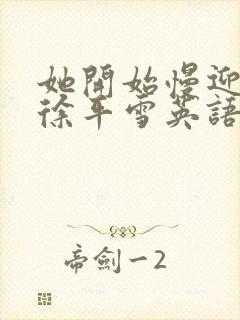 她開始慢迎
徐平雪英語
帝劍一2